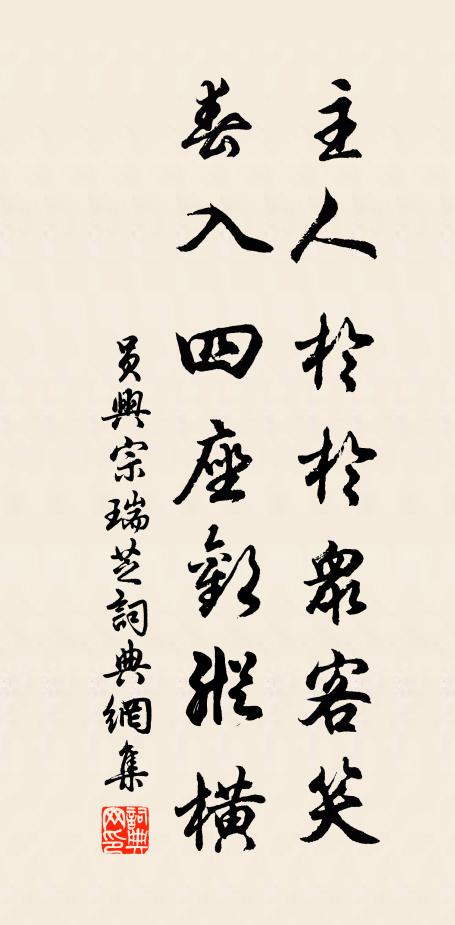 主人於於眾客笑
春入四座歡縱橫
員興宗瑞芝詞典網集
詞典网印